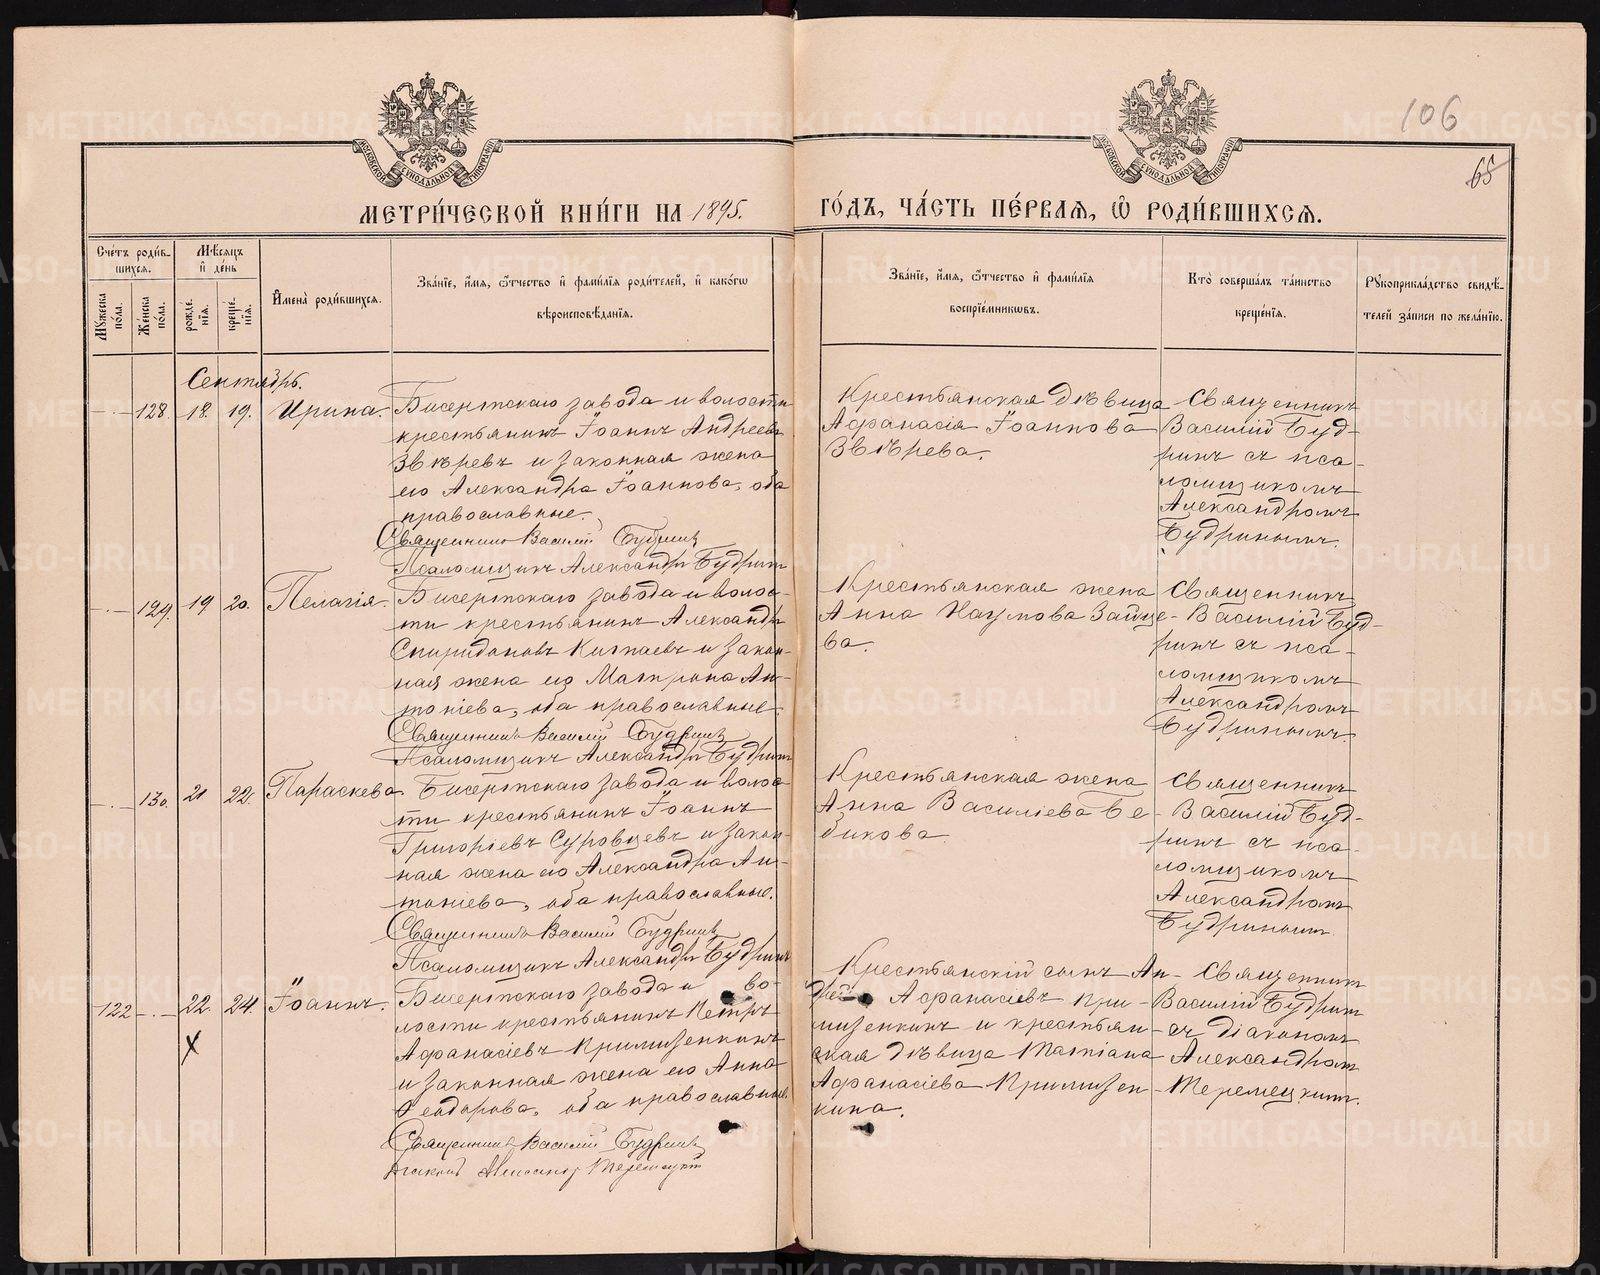 106
65
МОСКОВСКОЙ СѴНОДАЛЬНОЙ ТИПОГРАФІИ
МОСКОВСКОЙ СѴНОДАЛЬНОЙ ТИПОГРАФІИ
МЕТРИ́ЧЕСКОЙ КНИ́ГИ НА 1895.
ГО́ДЪ, ЧА́СТЬ ПЕ́РВАЯ, Ѡ РОДИ́ВШИХСЯ.
Сче́тъ роди́в-
шихся.
Мѣ́сяцъ
и де́нь
Мꙋ́жеска по́ла.
Же́нска по́ла.
рожде́-
нїя.
креще́-
нїя.
Имена̀ роди́вшихся.
Зва́нїе, и́мя, ѻ́тчество и фами́лїя роди́телей, и како́гѡ
вѣроисповѣ́данїя.
Зва́нїе, и́мя, ѻ́тчество и фами́лїя
воспрїе́мникѡвъ.
Кто̀ соверша́лъ та́инство
креще́нїя.
Рꙋкоприкла́дство свидѣ́-
телей за́писи по жела́нїю.
Сентябрь.
128. 18. 19. Ирина.
Бисертскаго завода и волости
крестьянинъ Іоаннъ Андреевъ
Звѣревъ и законная жена
его Александра Іоаннова, оба
православные.
Священникъ Василій Будринъ
Псаломщикъ Александръ Будринъ
Крестьянская дѣвица
Афанасія Іоаннова
Звѣрева.
Священникъ
Василій Буд-
ринъ съ пса-
ломщикомъ
Александромъ
Будринымъ.
129. 19 20. Пелагія.
Бисертскаго завода и волос-
ти крестьянинъ Александръ
Спиридоновъ и закон-
ная жена его Матрона Ан-
тоніева, оба православные.
Священникъ Василій Будринъ
Псаломщикъ Александръ Будринъ
Крестьянская жена
Анна Наумова Зайце-
ва.
Священникъ
Василій Буд-
ринъ съ пса-
ломщикомъ
Александромъ
Будринымъ.
130. 21 22. Параскева.
Бисертскаго завода и волос-
ти крестьянинъ Іоаннъ
Григоріевъ Суровцевъ и закон-
ная жена его Александра Ан-
тоніева, оба православные.
Священникъ Василій Будринъ
Псаломщикъ Александръ Будринъ
Крестьянская жена
Анна Василіева Бе-
бикова
Священникъ
Василій Буд-
ринъ съ пса-
ломщикомъ
Александромъ
Будринымъ.
122 22. 24. Іоаннъ.
Х
Бисертскаго завода и во-
лости крестьянинъ Петръ
Афанасіевъ Примизенкинъ
и законная жена его Анна
Феодорова, оба православные.
Священникъ Василій Будринъ
Діаконъ Александръ Теремецкій
Крестьянскій сынъ Ан-
дрей Афанасіевъ При-
мизенкинъ и крестьян-
ская дѣвица Татіана
Афанасіева Примизен-
кина.
Священникъ
Василій Будринъ
съ діакономъ
Александромъ
Теремецкимъ.
METRIKI.GASO-URAL.RU